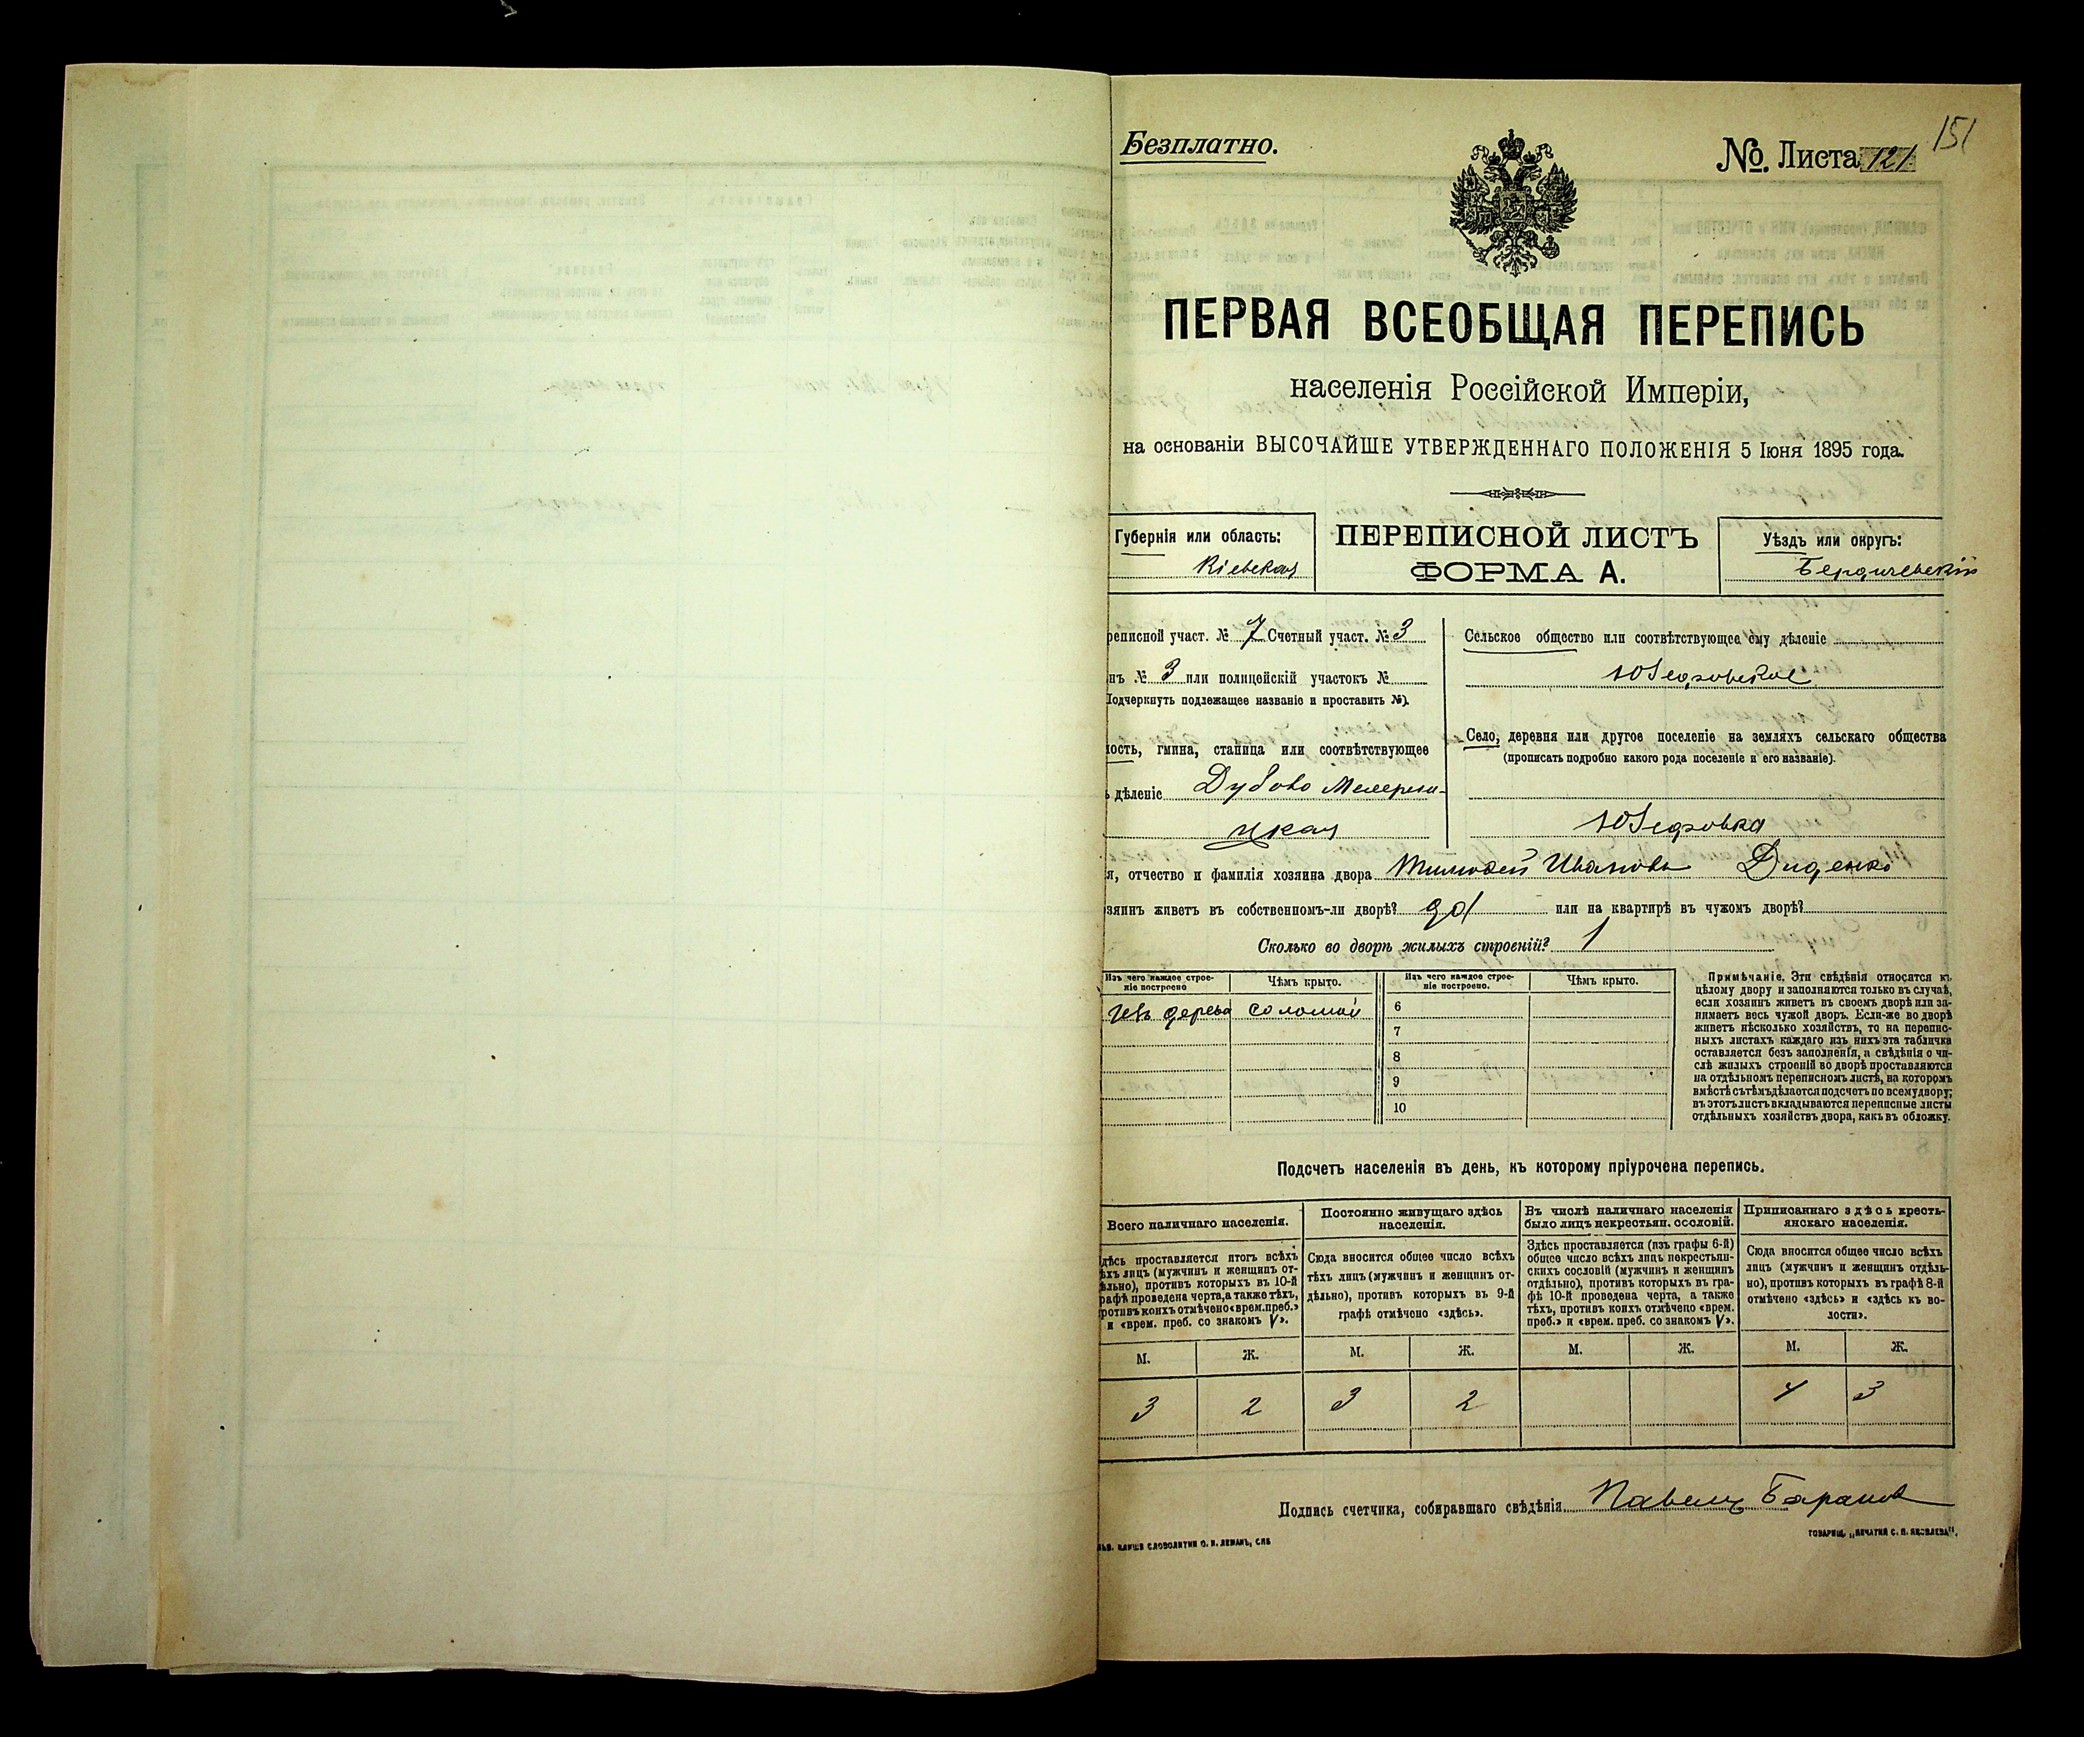 151
Безплатно.
№ Листа 121
ПЕРВАЯ ВСЕОБЩАЯ ПЕРЕПИСЬ
населенія Россійской Имперіи,
на основаніи ВЫСОЧАЙШЕ УТВЕРЖДЕННАГО ПОЛОЖЕНІЯ 5 Іюня 1895 года.
Губернія или область:
Кіевская
ПЕРЕПИСНОЙ ЛИСТЪ
ФОРМА А.
Уѣздъ или округъ:
Бердичевскій
реписной участ. № 7 Счетный участ. № 3
нъ № 3 или полицейскій участокъ №
Подчеркнуть подлежащее названіе и проставить №).
ость, гмина, станица или соотвѣтствующее
ъ дѣленіе Дубово Мехерин-
цкая
Сельское общество или соотвѣтствующее ему дѣленіе
Юзефовское
Село, деревня или другое поселеніе на земляхъ сельскаго общества
(прописать подробно какого рода поселеніе и его названіе).
Юзефовка
я, отчество и фамилія хозяина двора Тимофей Ивановъ Диденко
зяинъ живетъ въ собственномъ-ли дворѣ? да или на квартирѣ въ чужомъ дворѣ?
Сколько во дворѣ жилыхъ строеній? 1
Изъ чего каждое строе-
ніе построено
Чѣмъ крыто.
Изъ чего каждое строе-
ніе построено.
Чѣмъ крыто.
Изъ дерева соломой
6
7
8
9
10
Примѣчаніе. Эти свѣдѣнія относятся къ
цѣлому двору и заполняются только въ случаѣ,
если хозяинъ живетъ въ своемъ дворѣ или за-
нимаетъ весь чужой дворъ. Если-же во дворѣ
живетъ нѣсколько хозяйствъ, то на перепис-
ныхъ листахъ каждаго изъ нихъ эта табличка
оставляется безъ заполненія, а свѣдѣнія о чи-
слѣ жилыхъ строеній во дворѣ проставляются
на отдѣльномъ переписномъ листѣ, на которомъ
вмѣстѣ съ тѣмъ дѣлается подсчетъ по всему двору;
въ этотъ листъ вкладываются переписные листы
отдѣльныхъ хозяйствъ двора, какъ въ обложку.
Подсчетъ населенія въ день, къ которому пріурочена перепись.
Всего наличнаго населенія.
Здѣсь проставляется итогъ всѣхъ
ѣхъ лицъ (мужчинъ и женщинъ от-
ѣльно), противъ которыхъ въ 10-й
рафѣ проведена черта, а также тѣхъ,
ротивъ коихъ отмѣчено «врем. преб.»
и «врем. преб. со знакомъ V».
Постоянно живущаго здѣсь
населенія.
Сюда вносится общее число всѣхъ
тѣхъ лицъ (мужчинъ и женщинъ от-
дѣльно), противъ которыхъ въ 9-й
графѣ отмѣчено «здѣсь».
Въ числѣ наличнаго населенія
было лицъ некрестьян. сословій.
Здѣсь проставляется (изъ графы 6-й)
общее число всѣхъ лицъ некрестьян-
скихъ сословій (мужчинъ и женщинъ
отдѣльно), противъ которыхъ въ гра-
фѣ 10-й проведена черта, а также
тѣхъ, противъ коихъ отмѣчено «врем.
преб.» и «врем. преб. со знакомъ V».
Приписаннаго здѣсь кресть-
янскаго населенія.
Сюда вносится общее число всѣхъ
лицъ (мужчинъ и женщинъ отдѣль-
но), противъ которыхъ въ графѣ 8-й
отмѣчено «здѣсь» и «здѣсь къ во-
лости».
М. Ж. М. Ж. М. Ж. М. Ж.
3 2 3 2 4 3
Подпись счетчика, собиравшаго свѣдѣнія Павелъ Барановъ
КЛИШЕ СЛОВОЛИТНИ О. И. ЛЕМАНЪ, СПБ
ТОВАРИЩ. „ПЕЧАТНЯ С. П. ЯКОВЛЕВА".